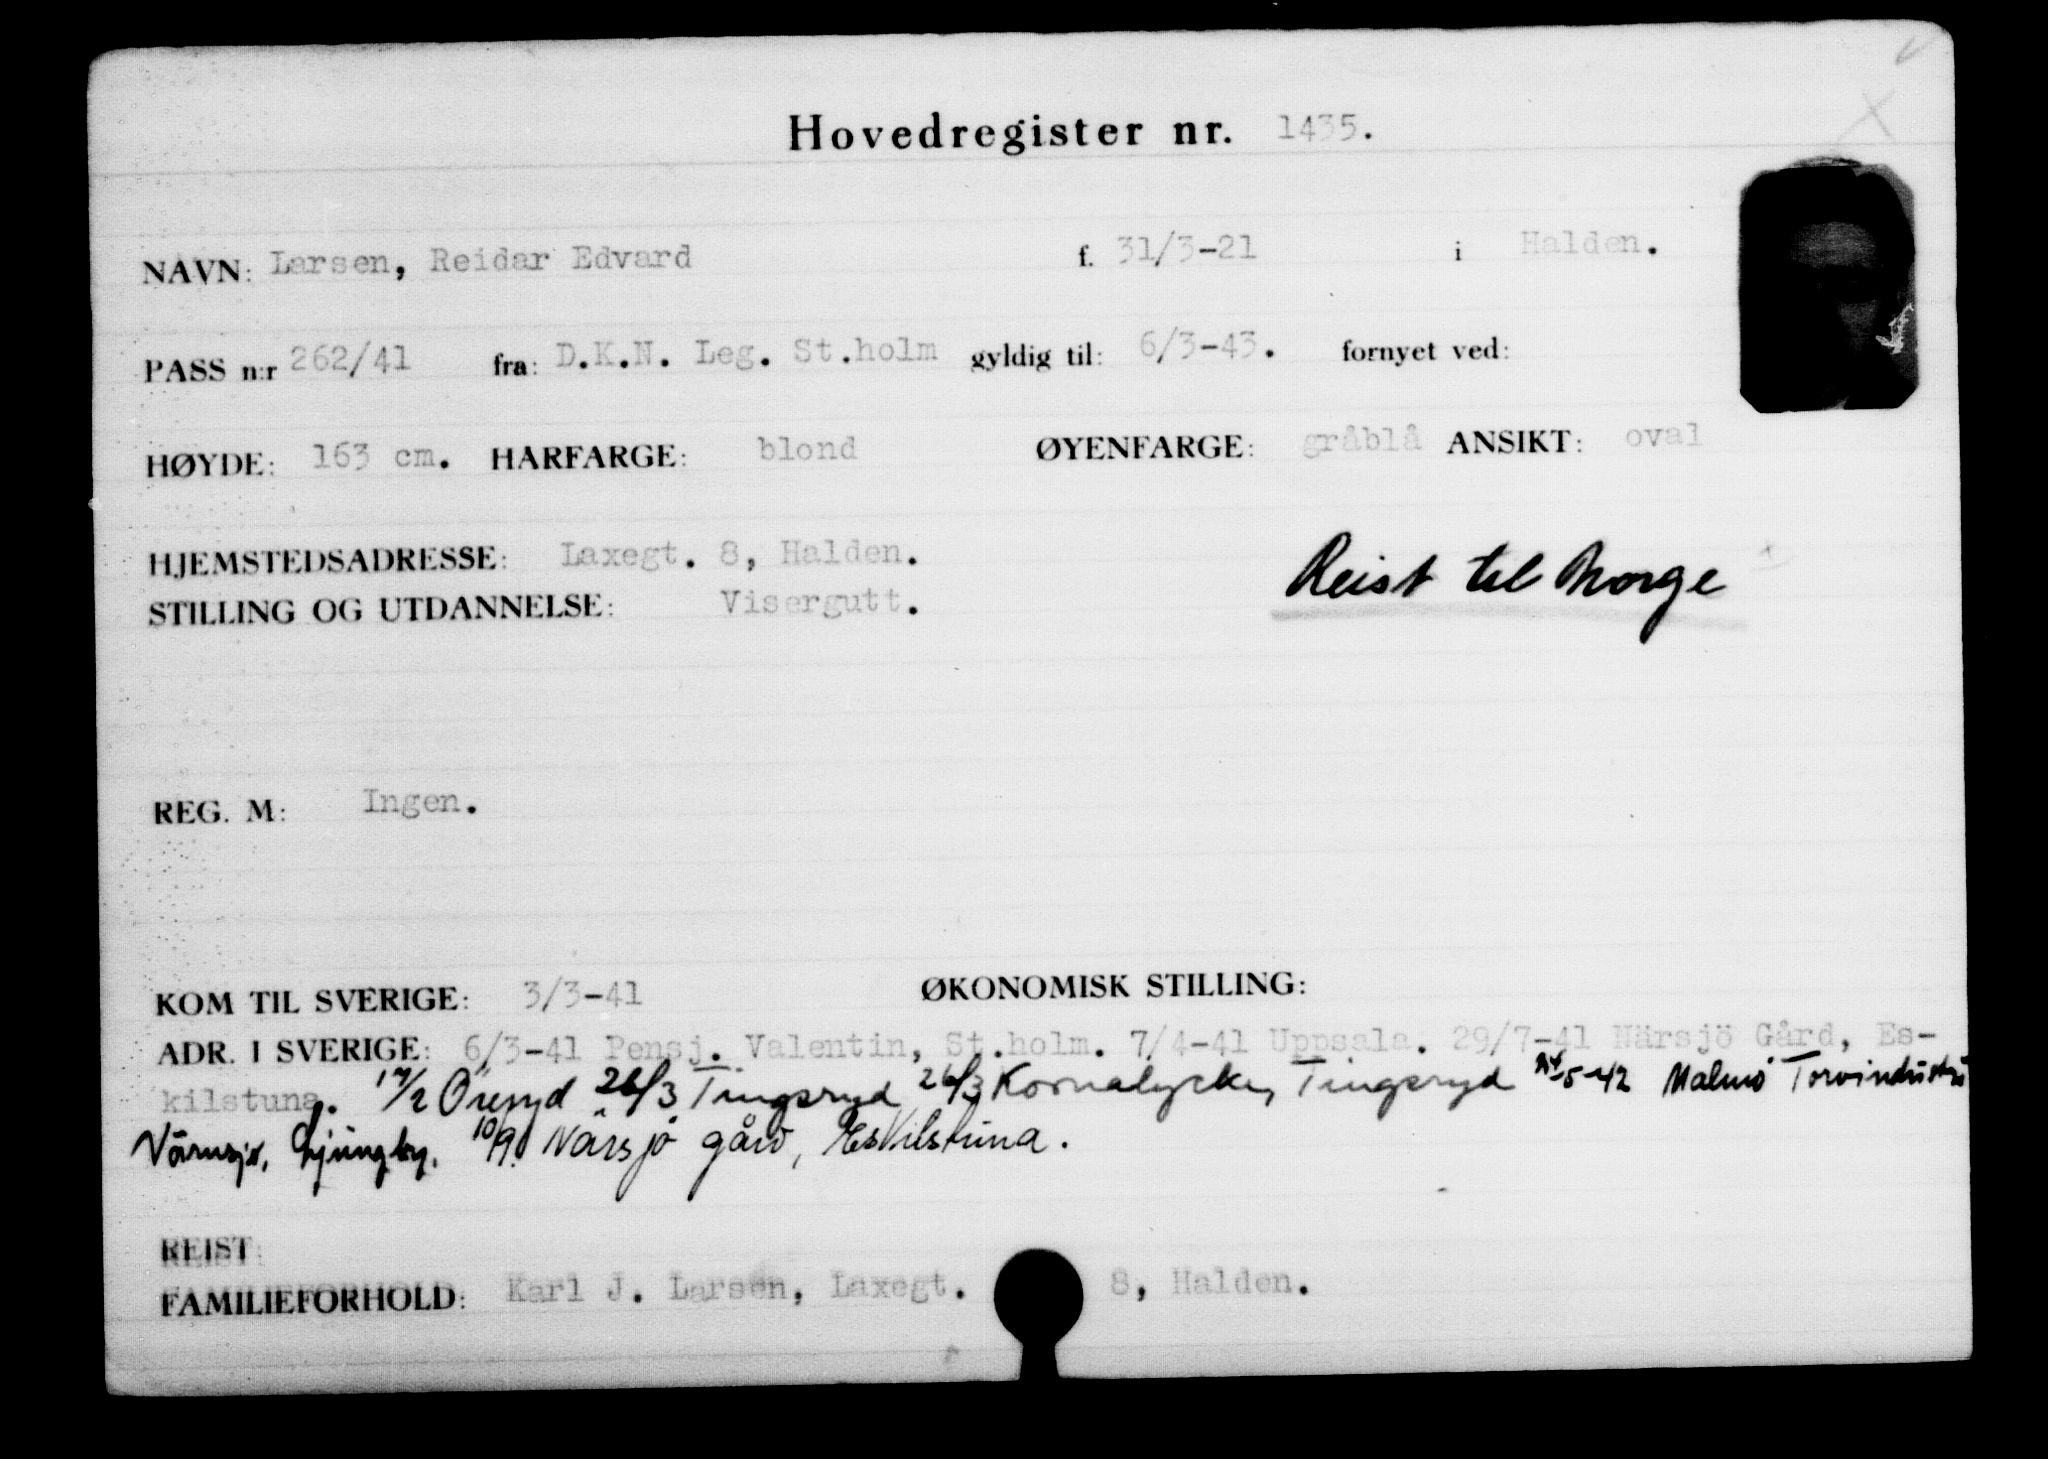 Hovedregister nr. 1435.
NAVN: Larsen, Reidar Edvard f. 31/3-21 i Halden.
PASS n:r 262/41 fra: D.K.N. Leg. St.holm gyldig til: 6/3-43. fornyet ved:
HØYDE: 163 cm. HARFARGE: blond ØYENFARGE: gråblå ANSIKT: oval
HJEMSTEDSADRESSE: Laxegt. 8, Halden.
Reist til Norge
STILLING OG UTDANNELSE: Visergutt.
REG. M: Ingen.
KOM TIL SVERIGE: 3/3-41 ØKONOMISK STILLING:
ADR. I SVERIGE: 6/3-41 Pensj. Valentin, St.holm. 7/4-41 Uppsala. 29/7-41 Närsjö Gård, Es-
kilstuna. 17/2 Öreryd 26/3 Tingsryd 26/3 Kornalycke, Tingsryd 5-42 Malmö Torvindustri
Värnsjö, Ljungby. 10/9. Närsjö gård, Eskilstuna.
REIST:
FAMILIEFORHOLD: Karl J. Larsen, Laxegt. 8, Halden.